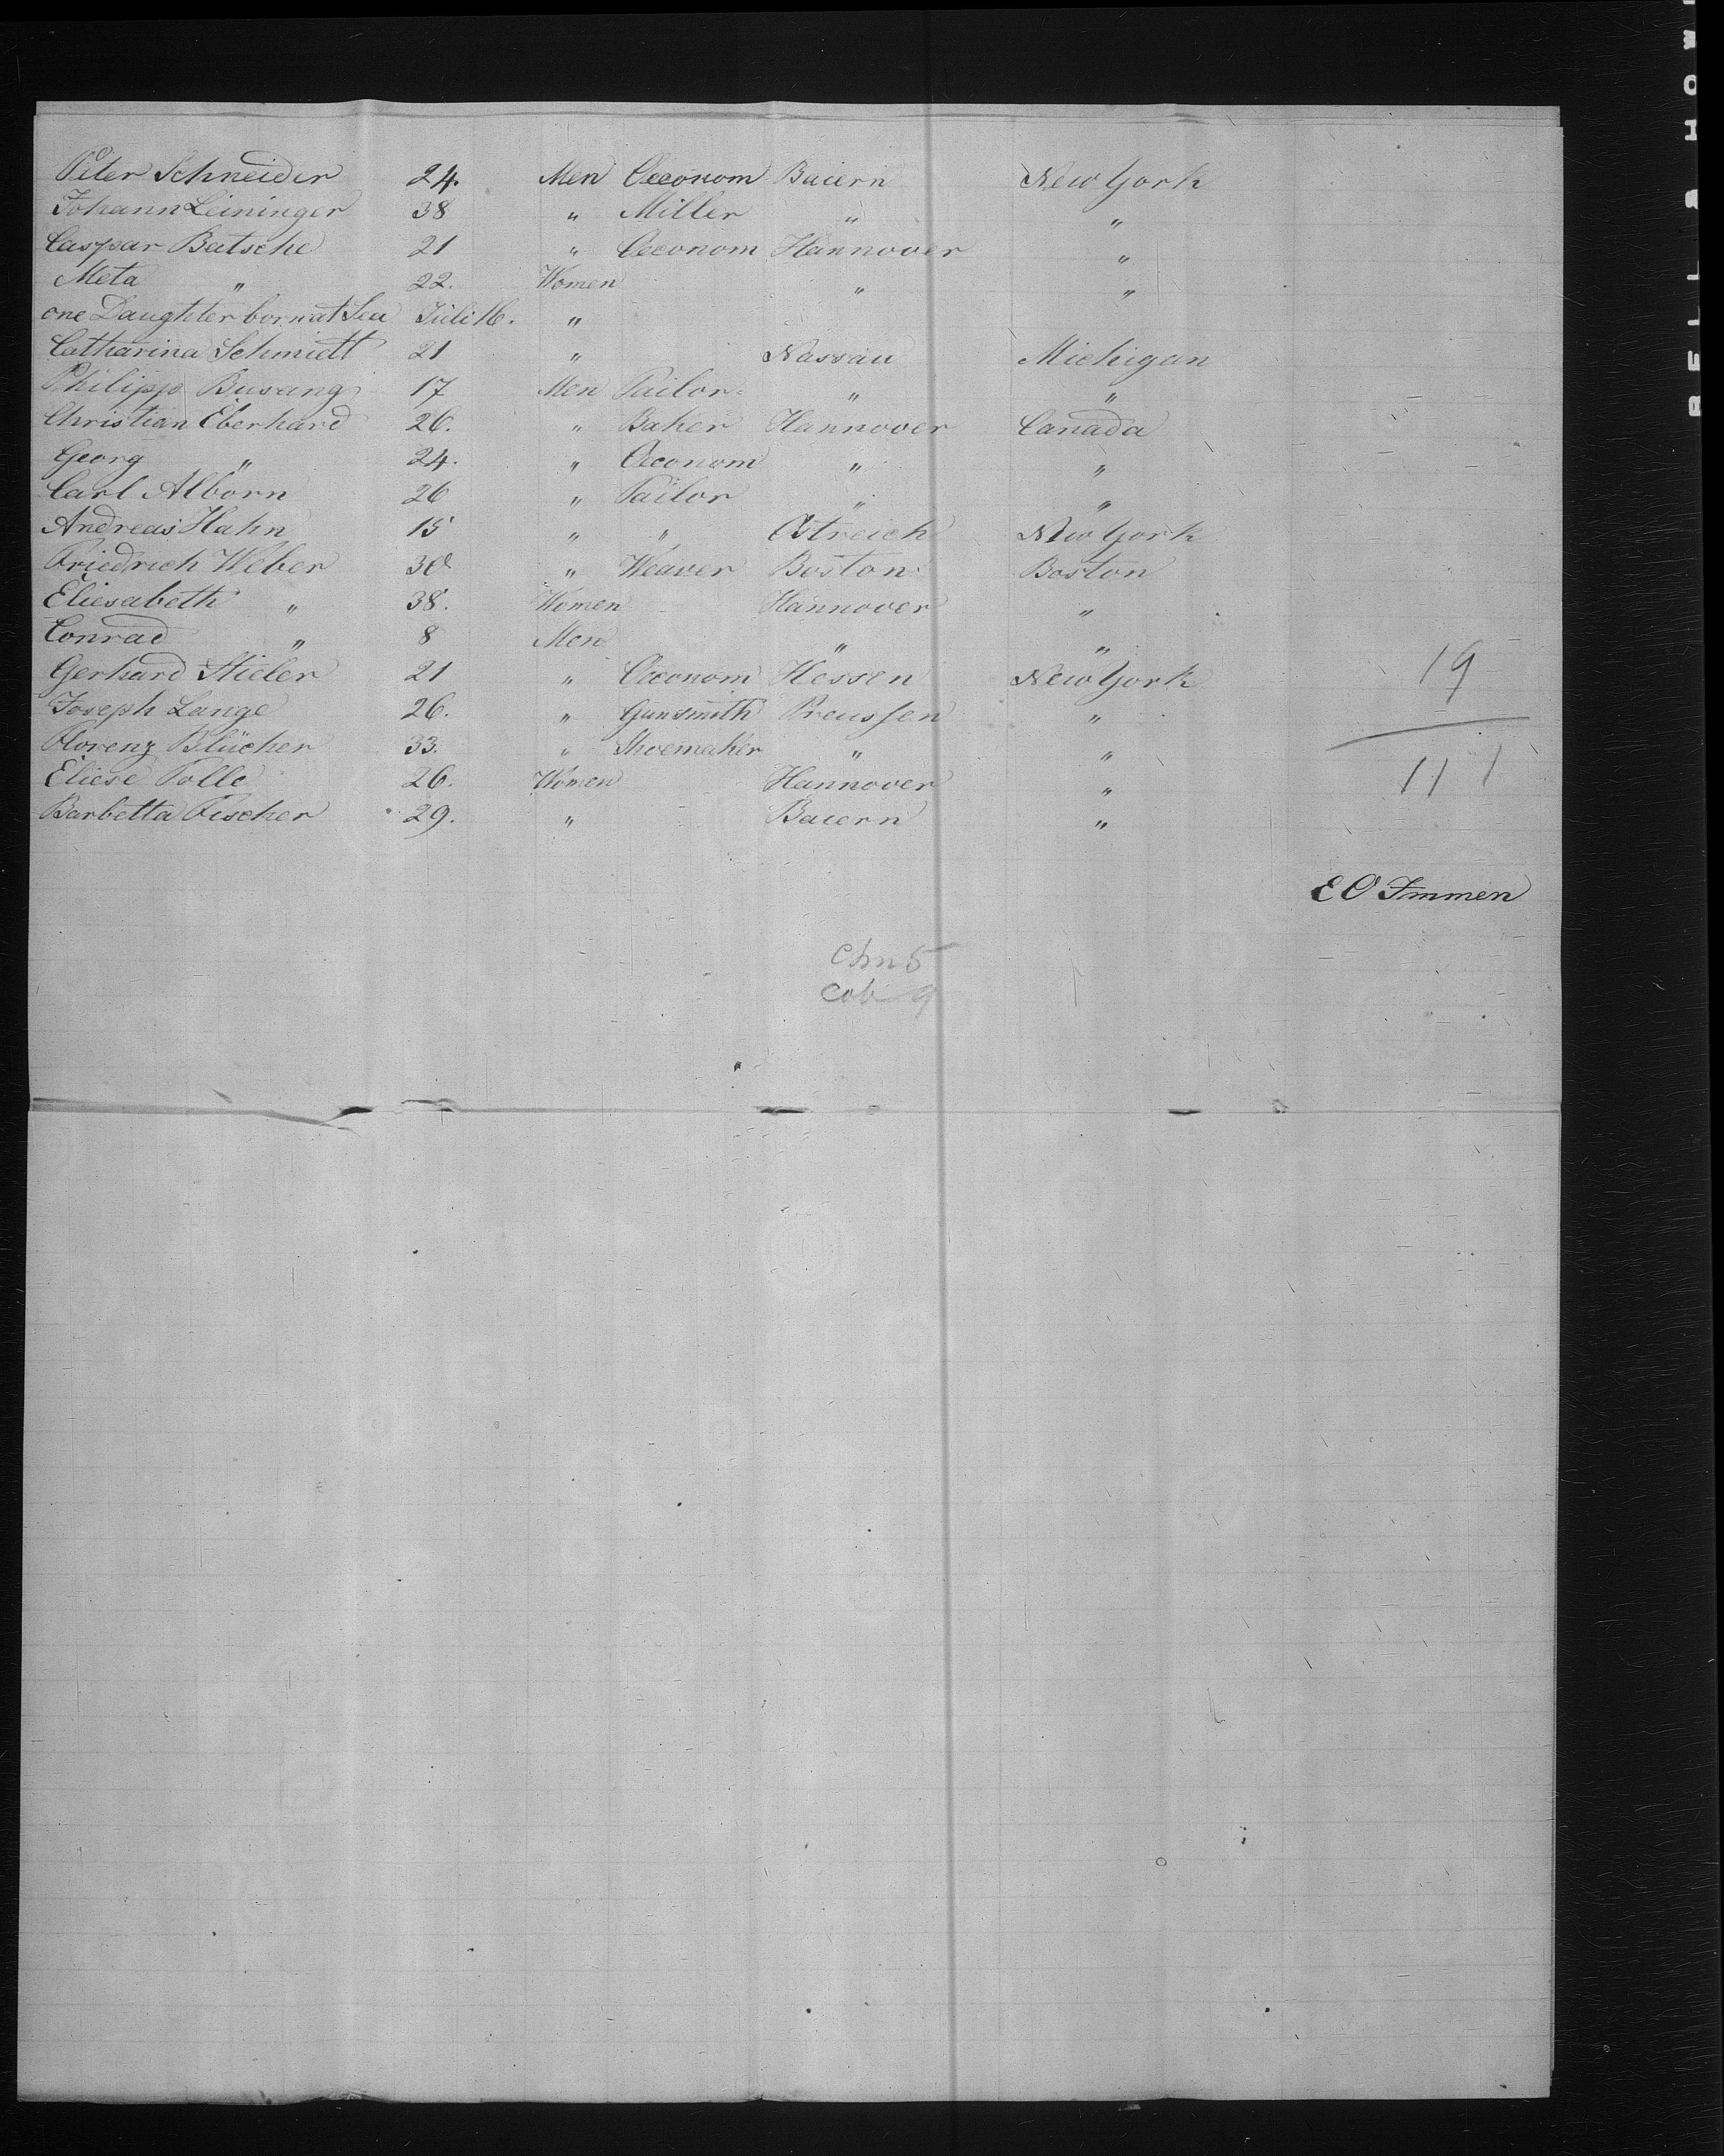 Peter Schneider 24. Men Oeconom Baiern New York
Johann Leininger 38 " Miller " "
Caspar Batsche 21 " Oeconom Hannover "
Meta " 22. Women " "
one Daughter born at Sea Juli 16. "
Catharina Schmidt 21 " Nassau Michigan
Philipp Busang 17 Men Tailor " "
Christian Eberhard 26. " Baker Hannover Canada
Georg " 24. " Oeconom " "
Carl Alborn 26 " Tailor " "
Andreas Hahn 15 " " Östreich New York
Friedrich Weber 30 " Weaver Boston Boston
Eliesabeth " 38. Women Hannover "
Conrad " 8 Men " "
Gerhard Stieler 21 " Oeconom Hessen New York
Joseph Lange 26. " Gunsmith Preussen "
Florenz Blücher 33. " Shoemaker " "
Eliese Polle 26. Women Hannover "
Barbetta Fischer 29. " Baiern "
19
111
E O Immen
Chn 5
Cob 9